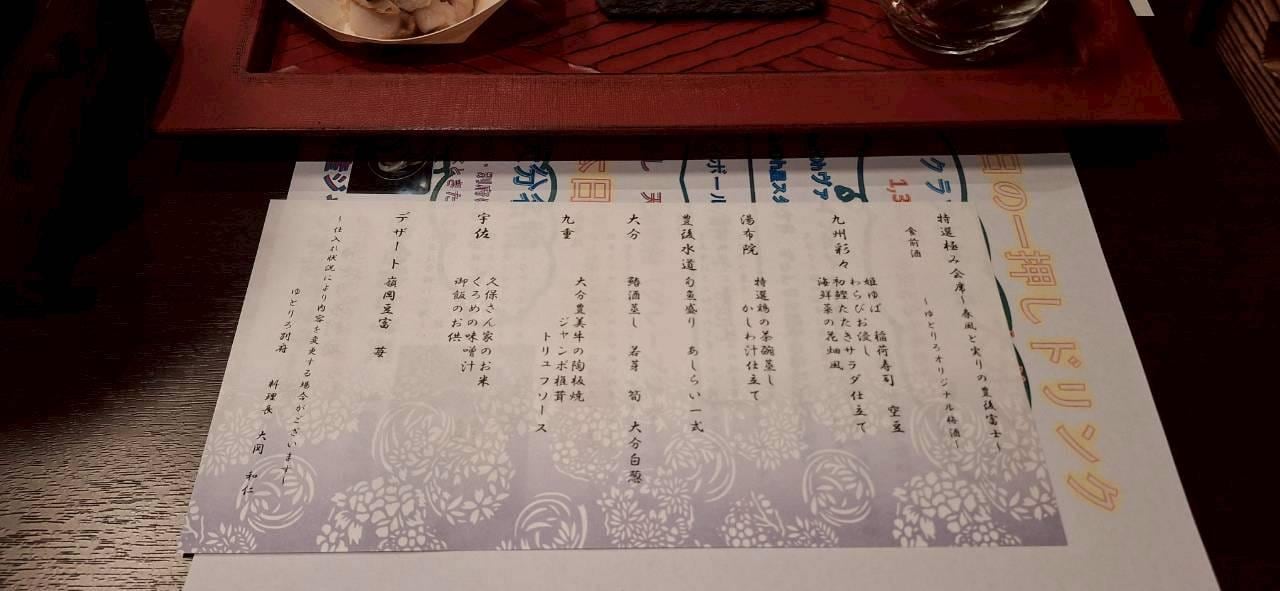 特選極み会席~春風と実りの豊後富士~
食前酒
~ゆとりろオリジナル梅酒~
九州彩々
姫ゆば 稲荷寿司 空豆
わらびお浸し
初鰹たたきサラダ仕立て
海鮮菜の花畑風
湯布院
特選鶏の茶碗蒸し
かしわ汁仕立て
豊後水道 旬魚盛り あしらい一式
大分 鰆酒蒸し 若芽 筍 大分白葱
九重
大分豊美牛の陶板焼
ジャンボ椎茸
トリュフソース
宇佐
久保さん家のお米
くろめの味噌汁
御飯のお供
デザート 嶺岡豆富 苺
~仕入れ状況により内容を変更する場合がございます~
ゆとりろ別府
料理長 大岡 和仁
日の一押しドリンク
クラ
1,3
ボール
本日
大分
別府